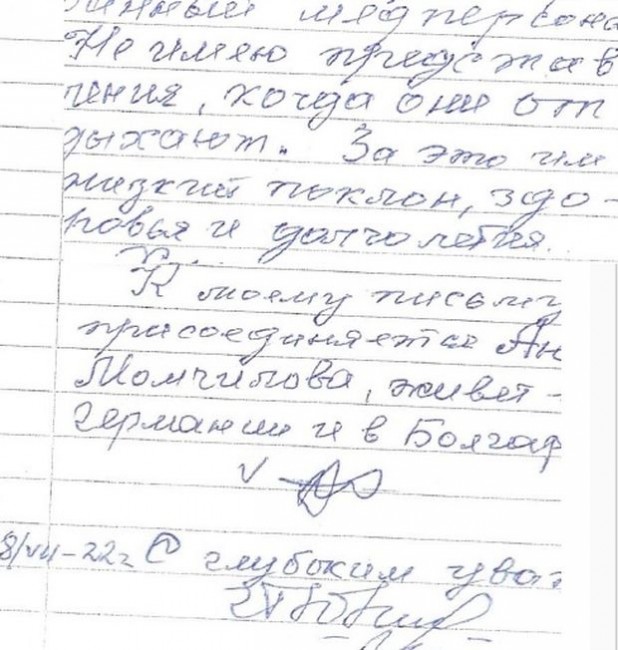 медперсона
Не имею представ
ления, когда они от
дыхают. За это им
низкий поклон, здо-
ровья и долголетия.
К моему письму
присоединяется Ан
Момчилова, живет -
Германии и в Болгар
8/VII-22г С глубоким ува